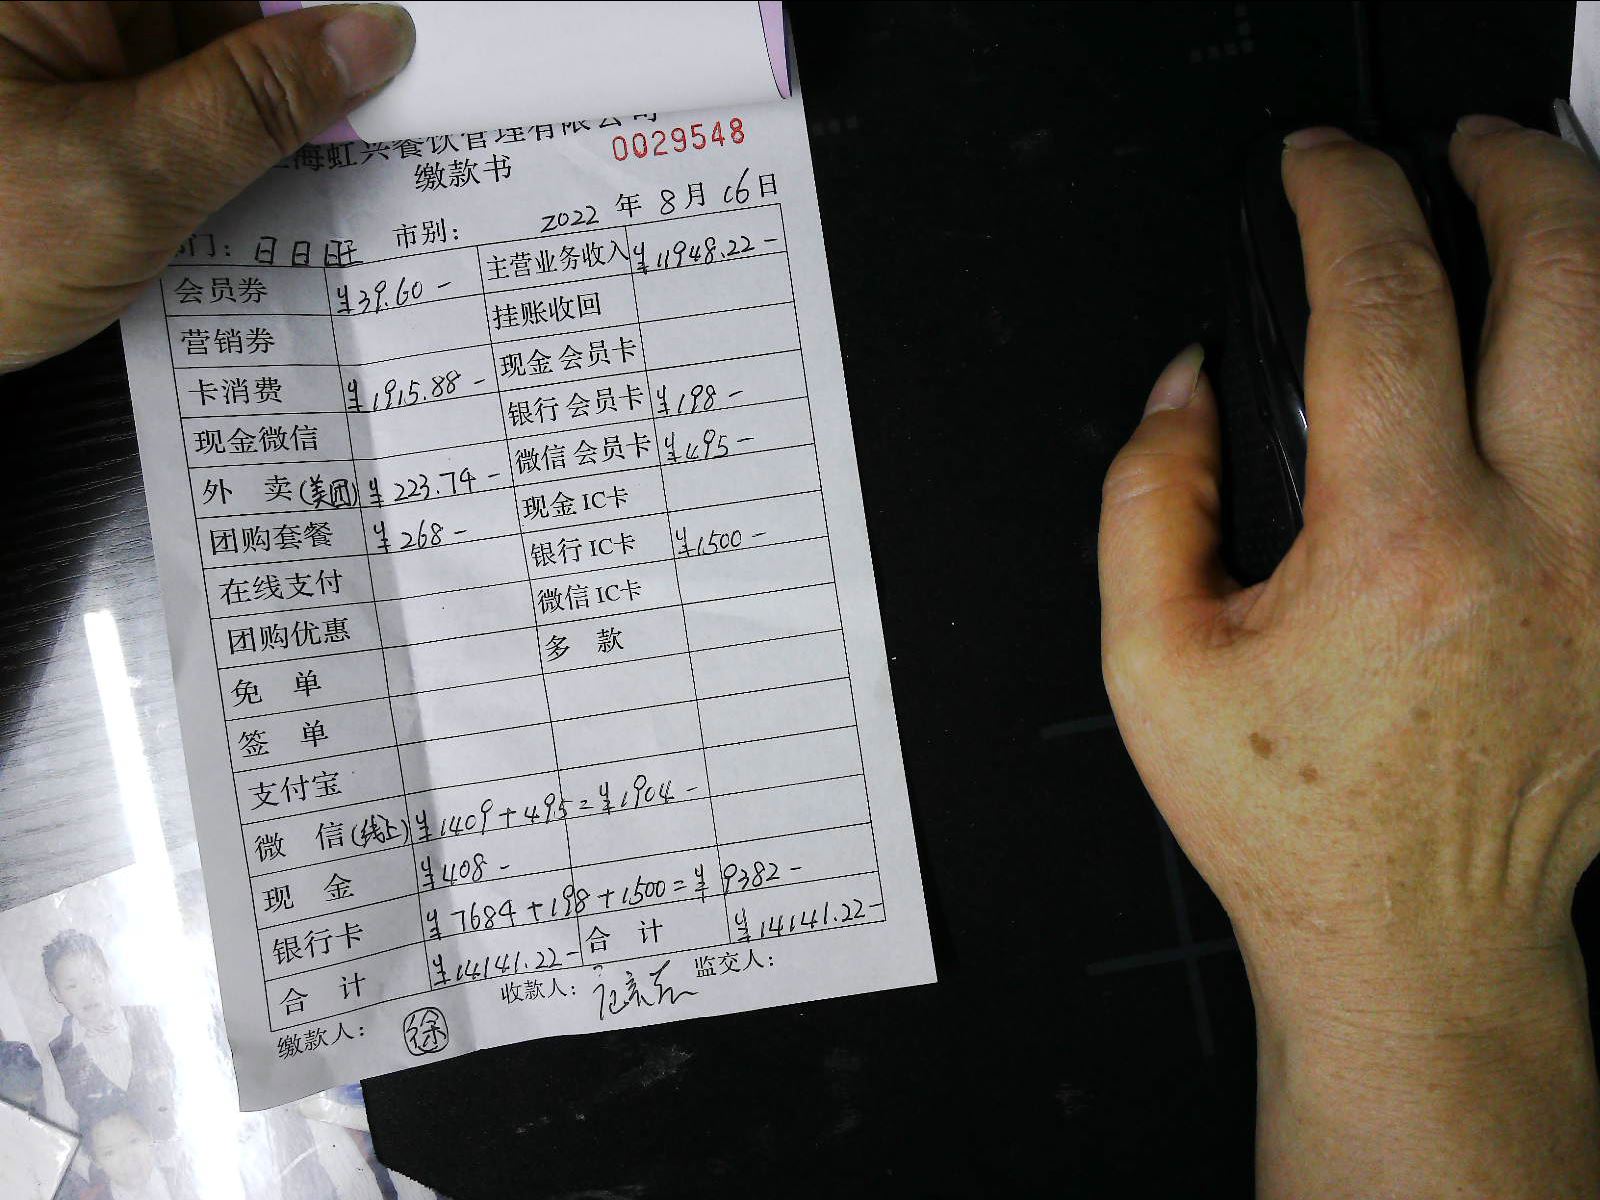 上海虹兴餐饮管理有限公司
0029548
缴款书
部门: 日日旺 市别: 2022 年 8 月 16 日
会员券 ¥39.60- 主营业务收入 ¥11948.22-
营销券 挂账收回
卡消费 ¥1915.88- 现金 会员卡
现金微信 银行 会员卡 ¥198-
外 卖(美团) ¥223.74- 微信 会员卡 ¥495-
团购套餐 ¥268- 现金 IC卡
在线支付 银行 IC卡 ¥1500-
团购优惠 微信 IC卡
免 单 多 款
签 单
支付宝
微 信(线上) ¥1409+495=¥1904-
现 金 ¥408-
银行卡 ¥7684+198+1500=¥9382-
合 计 ¥14141.22- 合 计 ¥14141.22-
缴款人: 徐 收款人: 监交人: